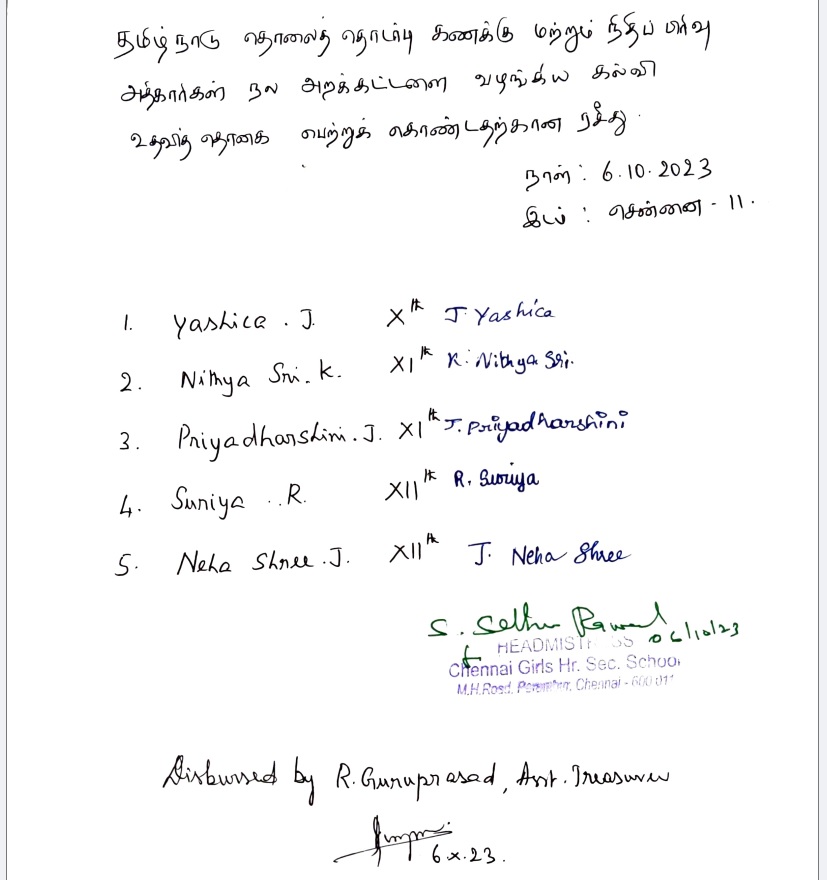 தமிழ்நாடு தொலைத் தொடர்பு கணக்கு மற்றும் நிதிப் பிரிவு
அதிகாரிகள் நல அறக்கட்டளை வழங்கிய கல்வி
உதவித் தொகை பெற்றுக் கொண்டதற்கான ரசீது.
நாள் : 6.10.2023
இடம் : சென்னை - 11.
1. Yashica . J. Xth J. Yashica
2. Nithya Sri. K. XIth K. Nithya Sri.
3. Priyadharshini. J. XIth J. Priyadharshini
4. Suriya . . R. XIIth R. Suriya
5. Neha Shree . J. XIIth J. Neha Shree
S. Sethu 06/10/23
HEADMISTRESS
Chennai Girls Hr. Sec. School
M.H. Road, Perambur, Chennai - 600 011
Disbursed by R. Guruprasad, Asst. Treasurer
6.x.23.